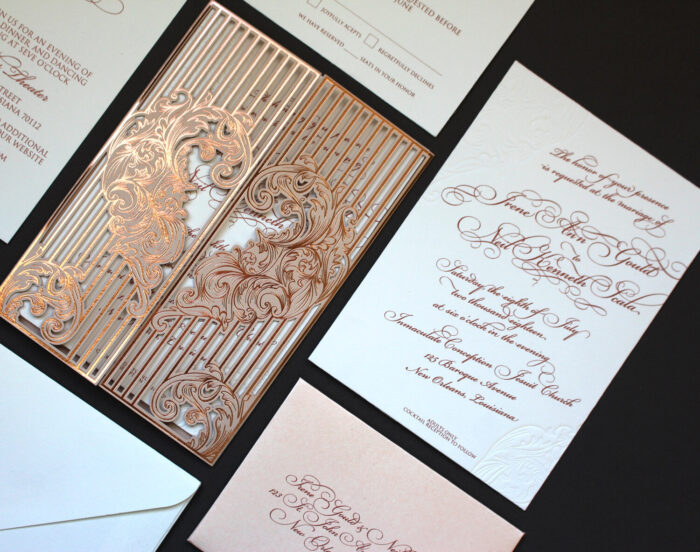 N FOR AN EVENING OF
DINNER AND DANCING
NING AT SEVE O'CLOCK
Theater
STREET
ISIANA 70112
ADDITIONAL
YOUR WEBSITE
OM
ESTED BEFORE
JUNE
JOYFULLY ACEPTS
REGRETFULLY DECLINES
WE HAVE RESERVED SEATS IN YOUR HONOR
The honor of your presence
is requested at the marriage of
Irene Ann Gould
Ned Kenneth Scala
Saturday the eighth of July
two thousand eighteen
at six o'clock in the evening
Immaculate Conception Jesuit Church
125 Baroque Avenue
New Orleans, Louisiana
ADULTY ONLY
COCKTAIL RECEPTION TO FOLLOW
Irene Gould & N
123 St. John A
New Orle